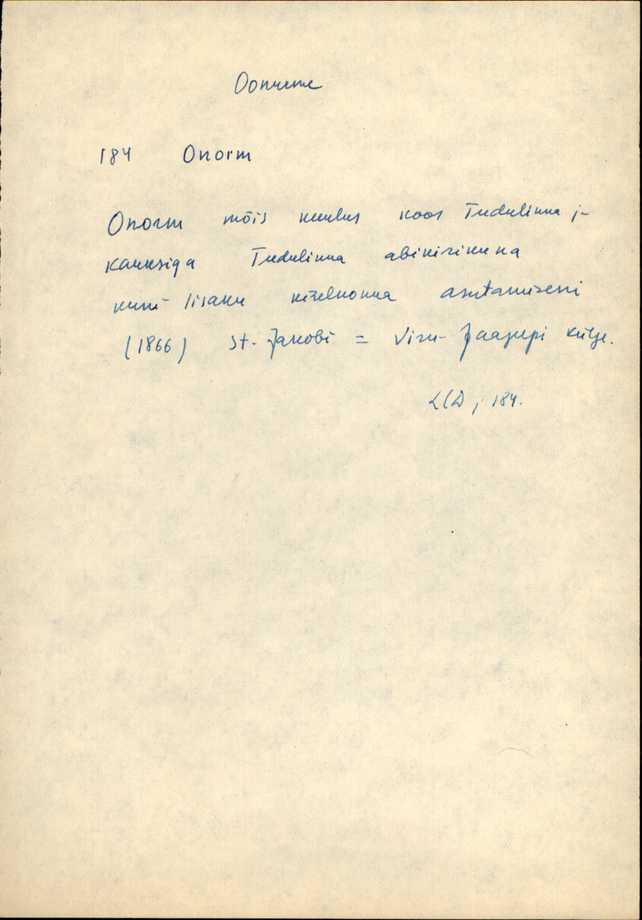 Oonurme
184 Onorm
Onorm mõis kuulus koos Tudulinna j-
Kauksiga Tudulinna abikirikuna
kuni Iisaku kihelkonna asutamiseni
(1866) St. Jakobi = Viru-Jaagupi külge.
184.